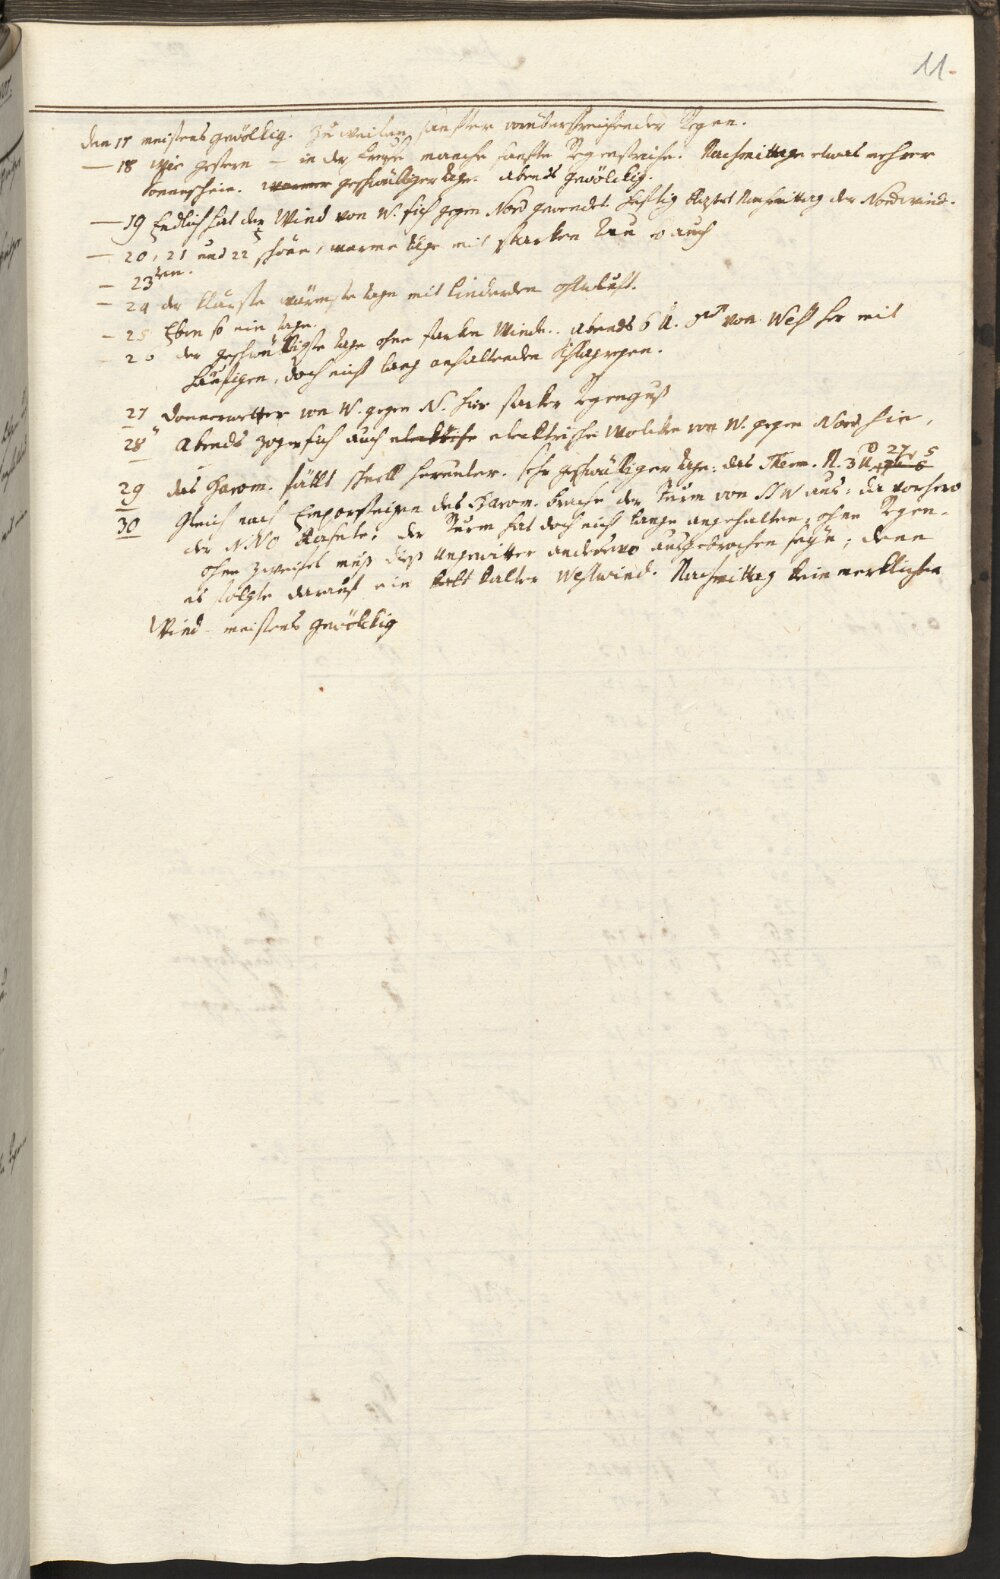 11.
den 17 meistens gewölkig. Zu weilen sanfter vorüberstreichender Regen.
— 18 Wie gestern — in der manche sanfte Regenstriche. Nachmittage etwas mehrer
Sonnenschein. warmer geschwüliger tag. abends gewölkig.
— 19 Endlich hat der Wind von W. sich gegen Nord gewendet. Nachmittag der Nordwind.
— 20, 21 und 22 schöne, warme tage mit starken Tau so auch
— 23ten.
— 24 der wärmste tage mit ostluft.
— 25 Eben so ein tage.
— 26 der geschwülligste tage ohne starken Winde. Abends 6 U. von West her mit
häufigen, doch nicht lang anhaltenden Schlagregen.
27 Donnerwetter von W. gegen N. hier starker Regenguß
28 Abends zogen sich auch elecktrische Wolcken von W. gegen Nord hin,
29 das Barom. fällt schnell herunter. sehr geschwülliger tage. das Therm. N. 3 U. 27. 5
30 Gleich nach Emporsteigen des Barom. brache der Sturm von SW aus: da vorhero
der NNO. der Sturm hat doch nicht lange angehalten, ohne Regen.
ohne zweifel muß dieß Ungewitter anderswo ausgebrochen seyn; denn
es folgte darauf ein kalter Westwind. Nachmittag kein mercklicher
Wind. meistens gewölckig